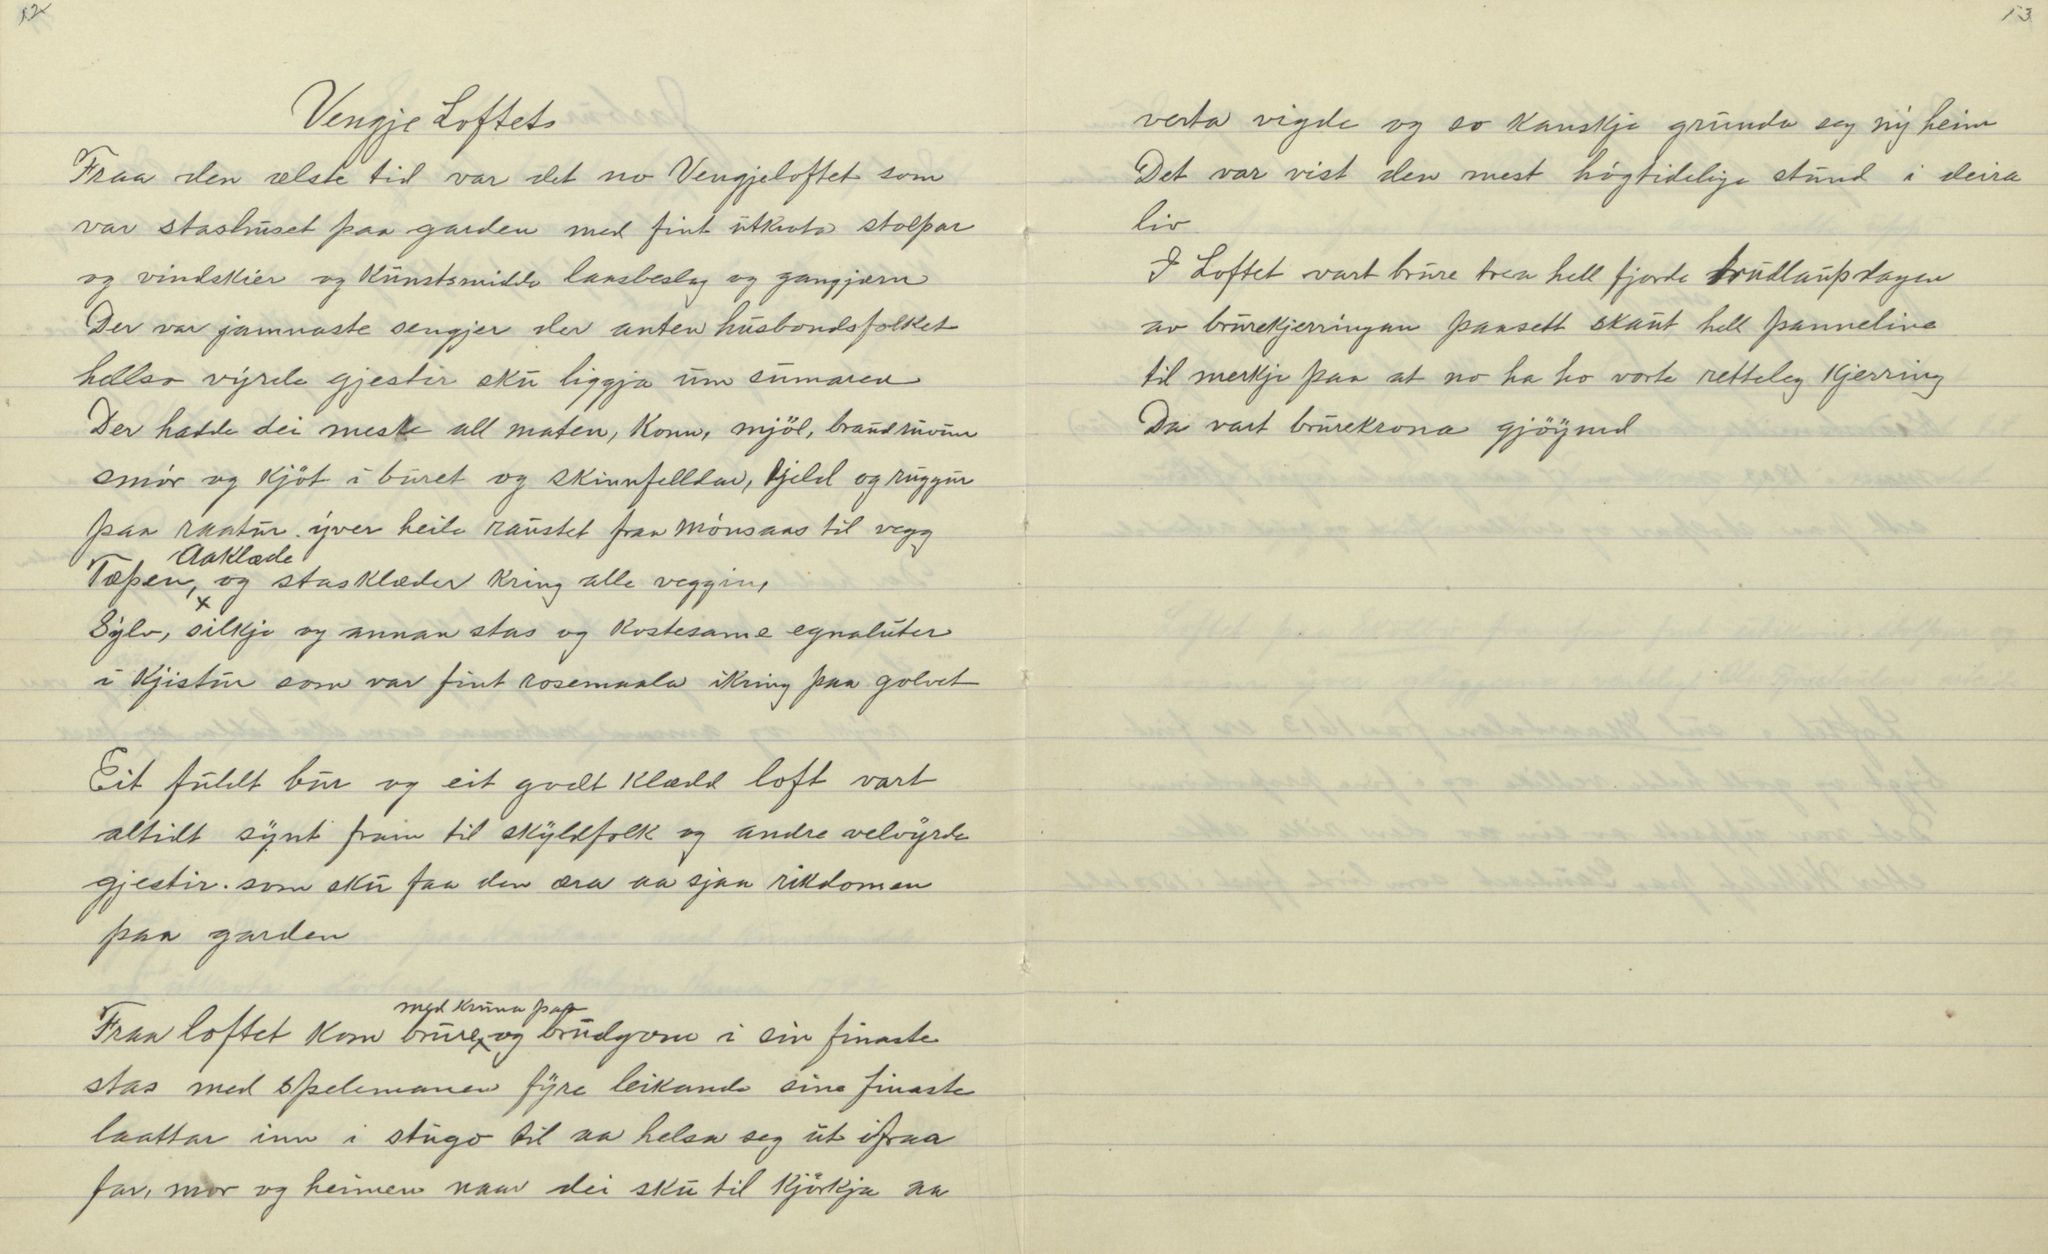 12
Vengje Loftets
Fraa den ælste tid var det no Vengjeloftet som
var stashuset paa garden med fint utkrota stolpar
og vindskier og kunstsmidde laasbeslag og gangjærn
Der var jamnaste sengjer der anten husbondsfolket
hellso vyrde gjestir sku liggja um sumaren
Der hadde dei meste all maten, Konn, mjöl, braudruvur
smór og Kjöt i buret og skinnfelldar, kjeld og ruggur
paa raatur. yver heile raustet fraa Mónsaas til vegg
Aaklæde
Tæpen, og stasklæder Kring alle veggin,
Sylv, silkje og annan stas og Kostesame egnaluter
i Kjistur som var fint rosemaala ikring paa golvet
Eit fuldt bur og eit godt Klædd loft vart
altidt synt fram til skyldfolk og andre velvyrde
gjestir. som sku faa den æra aa sjaa rikdomen
paa garden
med Kruna paa
Fraa loftet Kom brure og brudgom i sin finaste
stas med spelemanen fyre leikande sine finaste
laattar inn i stugo til aa helsa seg ut ifraa
far, mor og heimen naar dei sku til Kjörkja aa
13
verta vigde og so Kanskje grunda seg ny heim
Det var vist den mest högtidelige stund i deira
liv
I Loftet vart brure trea hell fjorde brudlaupsdagen
av brurekjerringan paasett skaut hell panneline
til merkje paa at no ha ho vorte retteleg Kjerring
Da vart brurekrona gjöymd